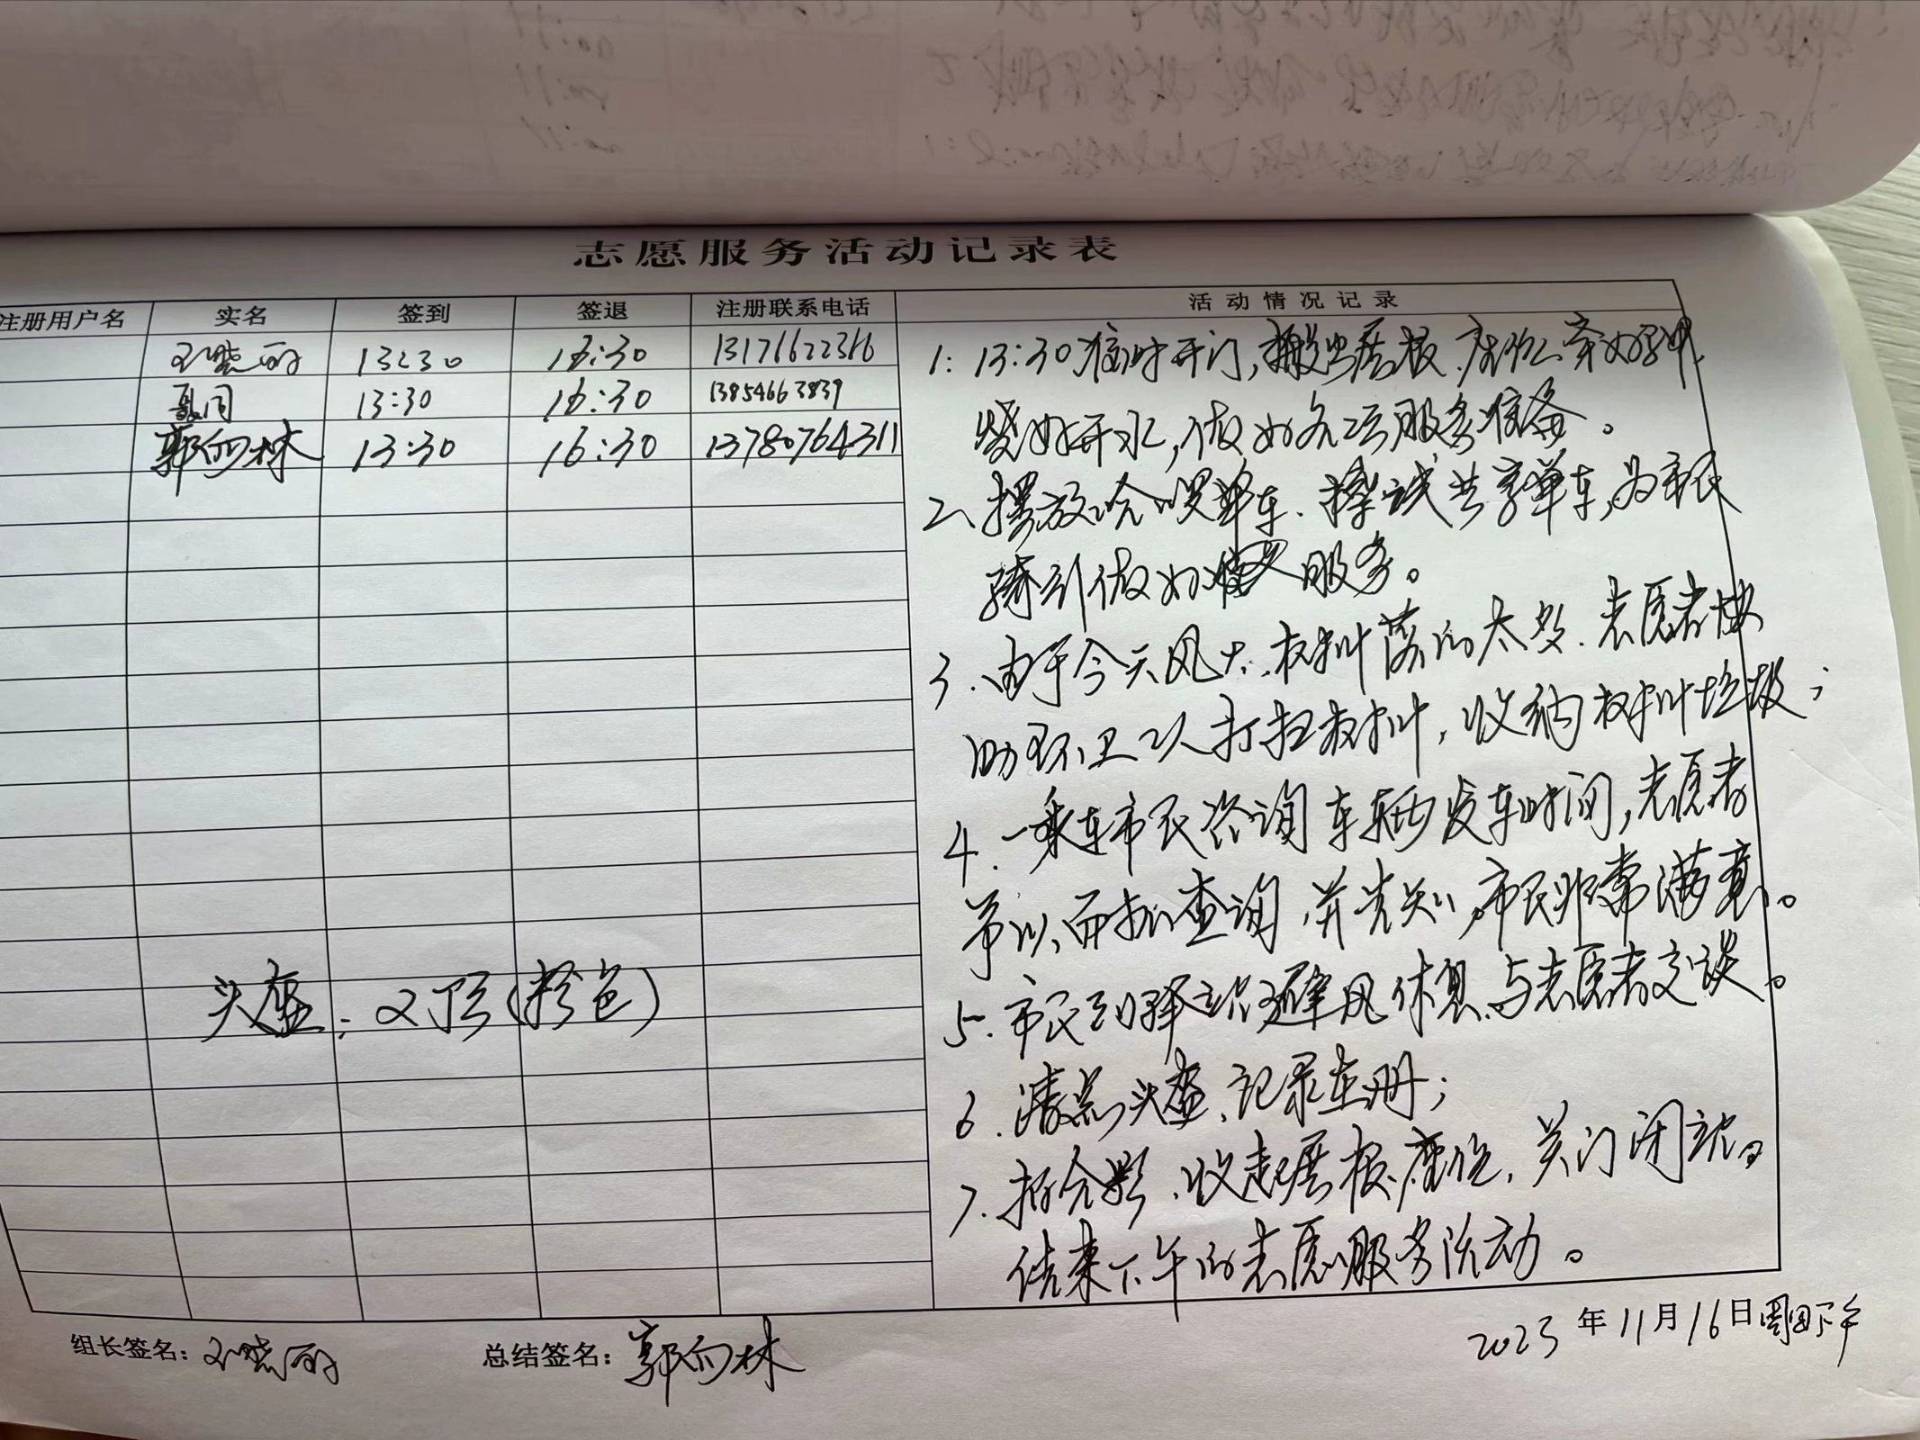 志愿服务活动记录表
注册用户名 实名 签到 签退 注册联系电话 活动情况记录
13:30 16:30 13176622316
13:30 16:30 13854663839
郭向林 13:30 16:30 13780764311
1: 13:30准时开门,搬出展板、座位、
烧好开水,做好各项服务准备。
2、摆放哈啰单车、擦拭共享单车,为市民
骑行做好服务。
3、由于今天风大、树叶落的太多、志愿者协
助环卫工人打扫树叶,收纳树叶垃圾;
4、一乘车市民咨询车辆发车时间,志愿者
予以查询,并告知,市民非常满意。
5、市民到驿站避风休息、与志愿者交谈。
6、清点头盔、记录在册;
7、拍合影、收起展板、座位、关门闭站。
结束下午的志愿服务活动。
头盔:2顶(粉色)
组长签名: 总结签名:郭向林 2023年11月16日周四下午